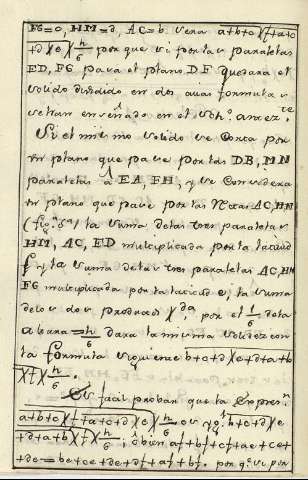 FG=c, HM=d, AC=b sera a+b+c)(f+a+c
+d)(e)( h/6 porque si por las paralelas
ED, FG pasa el plano DF quedara el
solido dividido en dos cuias formulas
se en el
Si el mismo solido se Corta por
un plano que pase por las DB, MN
paralelas à EA, FH, y se Considera
un plano que pase por las Rectas AC, HN
(fig. 5a) la suma delas tres paralelas
HM, AC, ED multiplicada por la
f y la suma delas tres paralelas AC, HM
FG multiplicada por la e, la suma
delos dos productos por el 1/6 dela
altura = h/6 dara la misma solidez con
la formula siguiente b+c+d)(e+d+a+b
)(f)( h/6.
Es facil probar que la Expresn
a+b+c)(f+a+c+d)(e)( h/6 es b+c+d)(e
+d+a+b)(f)( h/6, ô bien af+bf+cf+ae+ce+
+de=be+ce+de+df+af+bf. por